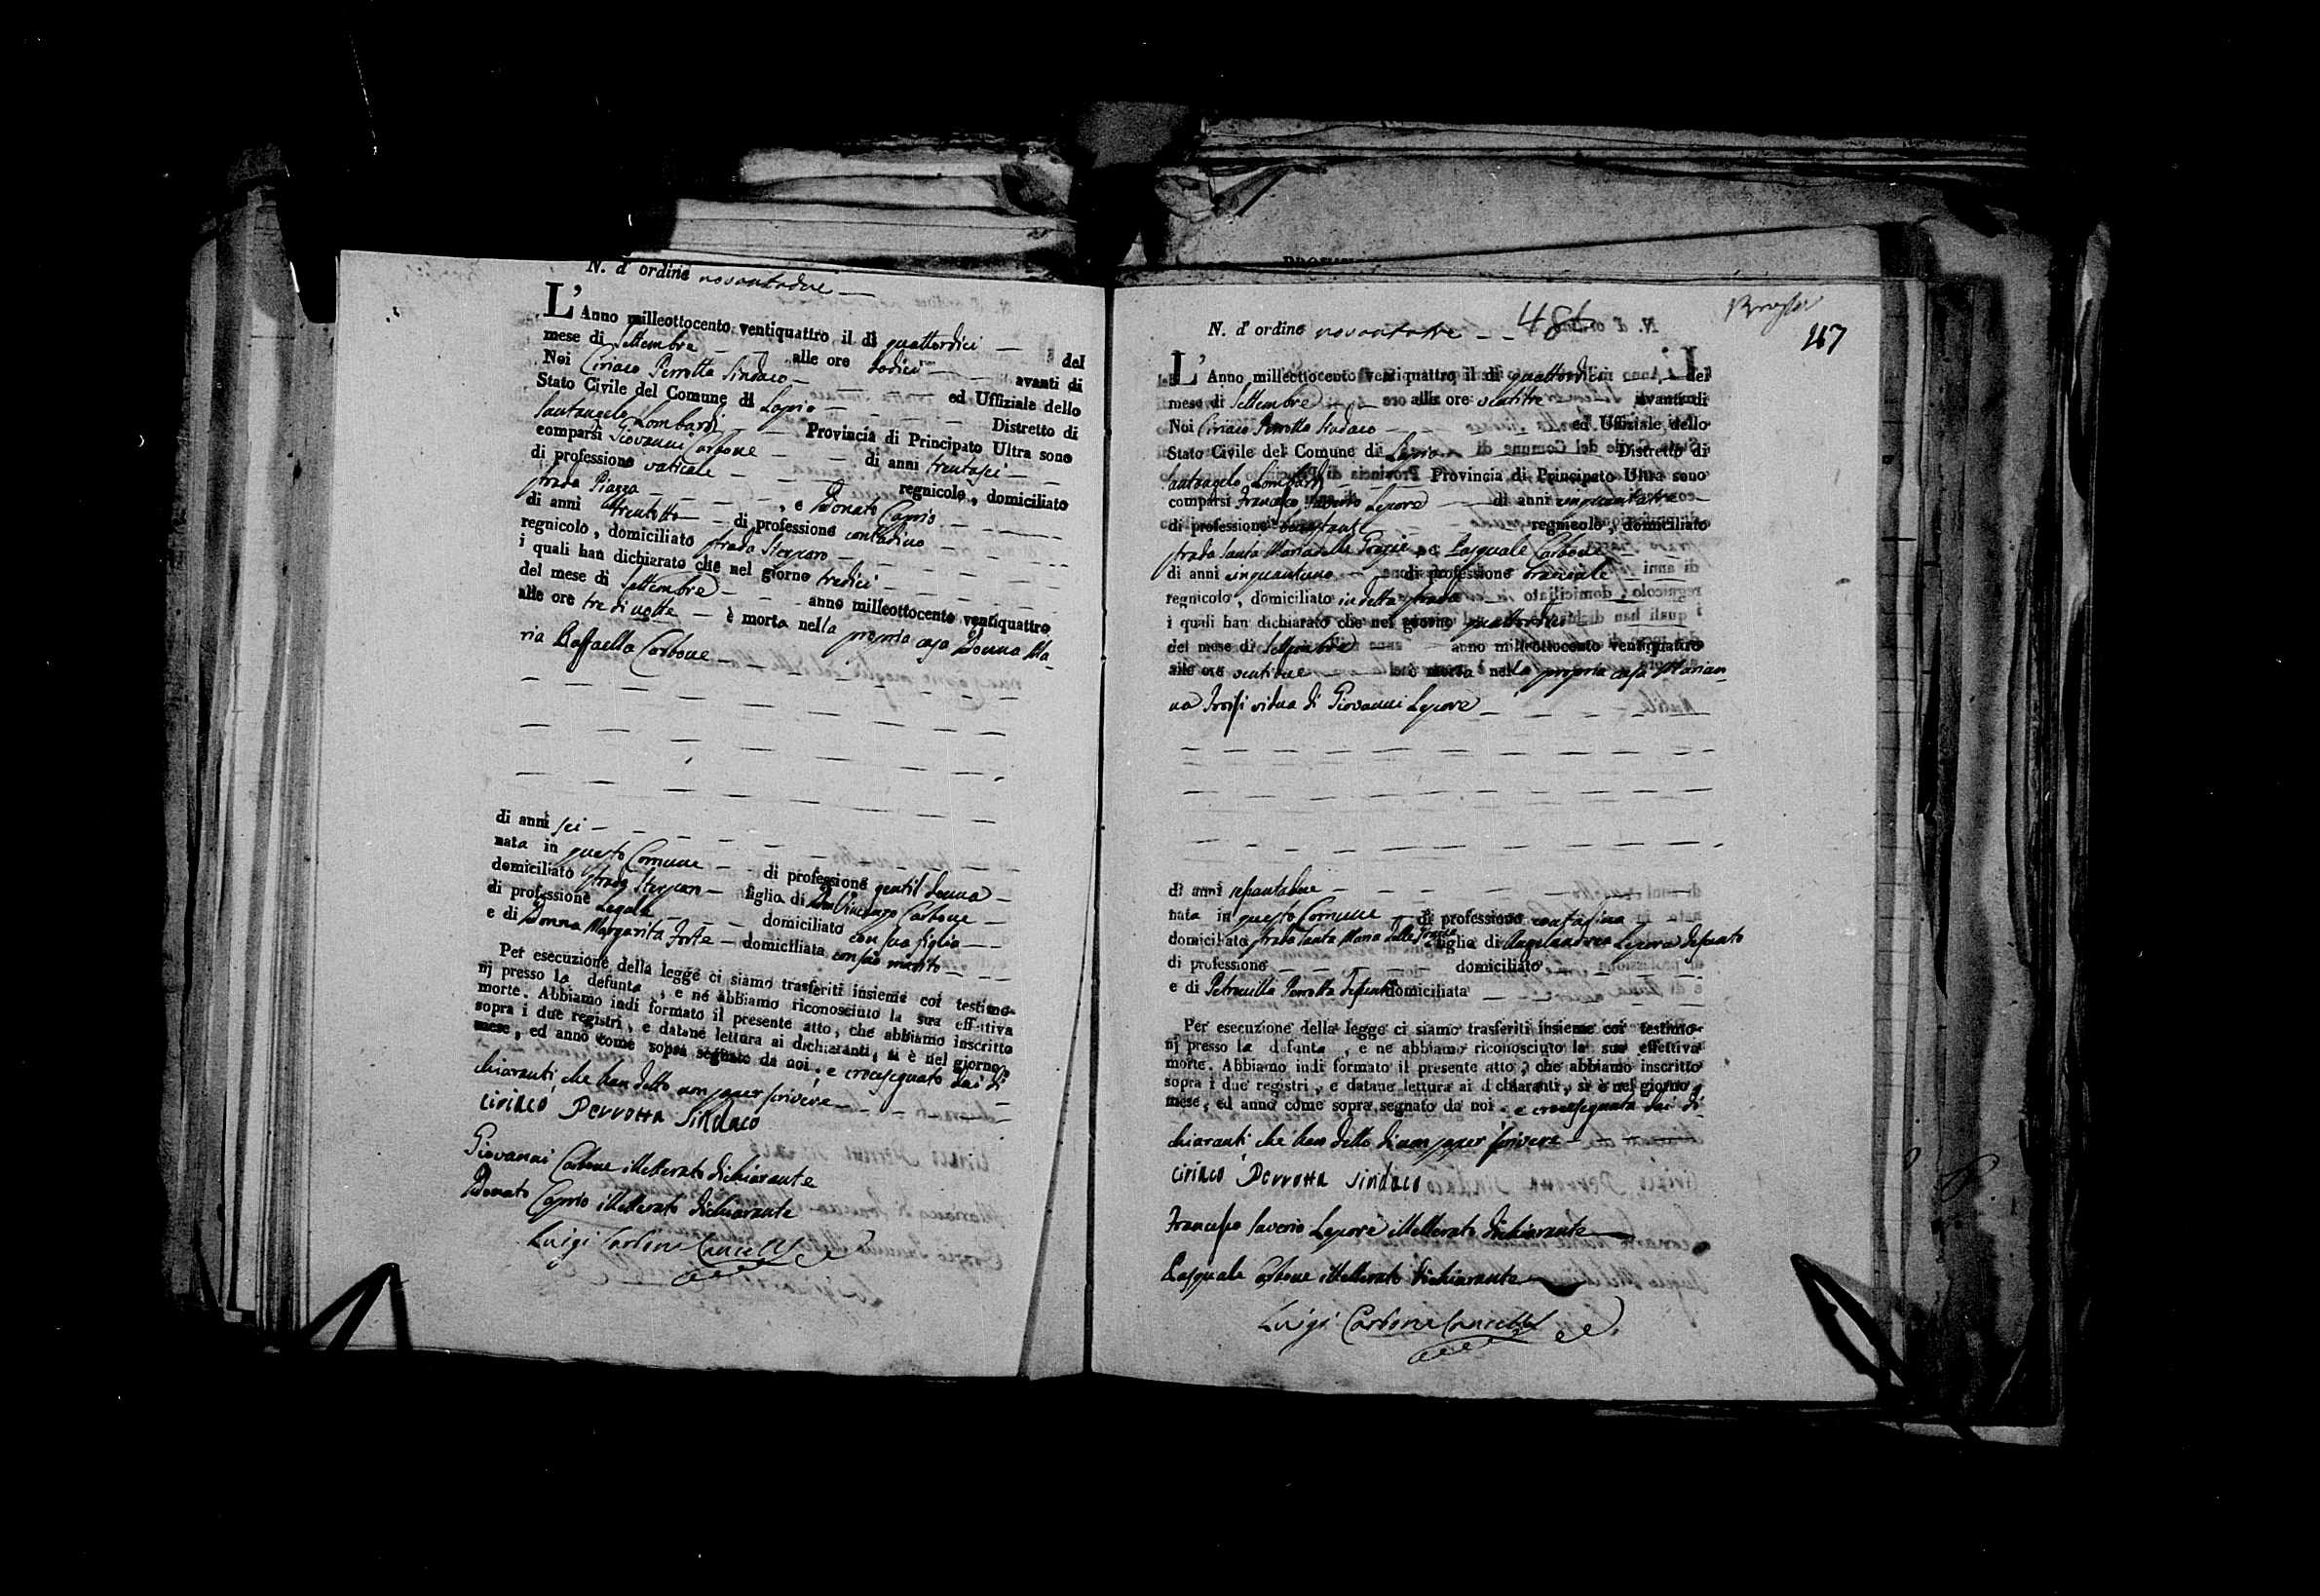 N. d' ordine novantadue
L' Anno milleottocento ventiquattro il di quattordici del
mese di Settembre alle ore dodici avanti di
Noi Ciriaco Perrotta Sindaco ed Uffiziale dello
Stato Civile del Comune di Lapio Distretto di
Santangelo Lombardi Provincia di Principato Ultra sono
comparsi Giovanni Carbone di anni trentasei
di professione vaticale regnicolo, domiciliato
strada Piazza, e Donato Caprio
di anni trentotto di professione contadino
regnicolo, domiciliato strada
i quali han dichiarato che nel giorno tredici
del mese di Settembre anno milleottocento ventiquattro
alle ore tre di notte è morta nella propria casa Donna Ma-
ria Raffaella Carbone
di anni sei
nata in questo Comune di professione gentil donna
domiciliato strada figlia di Don Vincenzo Carbone
di professione Legale domiciliato con sua figlia
e di Donna Margarita Forte domiciliata con suo marito
Per esecuzione della legge ci siamo trasferiti insieme coi testimo-
nj presso la defunta, e ne abbiamo riconosciuto la sua effettiva
morte. Abbiamo indi formato il presente atto, che abbiamo inscritto
sopra i due registri, e datane lettura ai dichiaranti, si è nel giorno,
mese, ed anno come sopra segnato da noi, e crocesegnato dai di
chiaranti che han detto non saper scrivere
Ciriaco Perrotta Sindaco
Giovanni Carbone illetterato dichiarante
Donato Caprio illetterato dichiarante
Luigi Carbone Cancell
N. d' ordine novantatre
47
L' Anno milleottocento ventiquattro il di quattordici del
mese di Settembre alle ore ventitre avanti di
Noi Ciriaco Perrotta Sindaco ed Uffiziale dello
Stato Civile del Comune di Lapio Distretto di
Santangelo Lombardi Provincia di Principato Ultra sono
comparsi Francesco Saverio Lepore di anni cinquantatre
di professione regnicolo, domiciliato
strada Santa Maria delle Grazie, e Pasquale Carbone
di anni cinquantuno di professione bracciale
regnicolo, domiciliato in detta strada
i quali han dichiarato che nel giorno quattordici
del mese di Settembre anno milleottocento ventiquattro
alle ore ventidue è morta nella propria casa Marian-
na Troisi vidua di Giovanni Lepore
di anni settantadue
nata in questo Comune di professione contadina
domiciliato strada Santa Maria delle Grazie figlia di Angelandrea Lepore defunto
di professione domiciliato
e di Petronilla Perrotta defunta domiciliata
Per esecuzione della legge ci siamo trasferiti insieme coi testimo-
nj presso la defunta, e ne abbiamo riconosciuto la sua effettiva
morte. Abbiamo indi formato il presente atto, che abbiamo inscritto
sopra i due registri, e datane lettura ai dichiaranti, si è nel giorno,
mese, ed anno come sopra segnato da noi, e crocesegnata dai di
chiaranti che han detto di non saper scrivere
Ciriaco Perrotta Sindaco
Francesco Saverio Lepore illetterato dichiarante
Pasquale Carbone illetterato dichiarante
Luigi Carbone Cancell